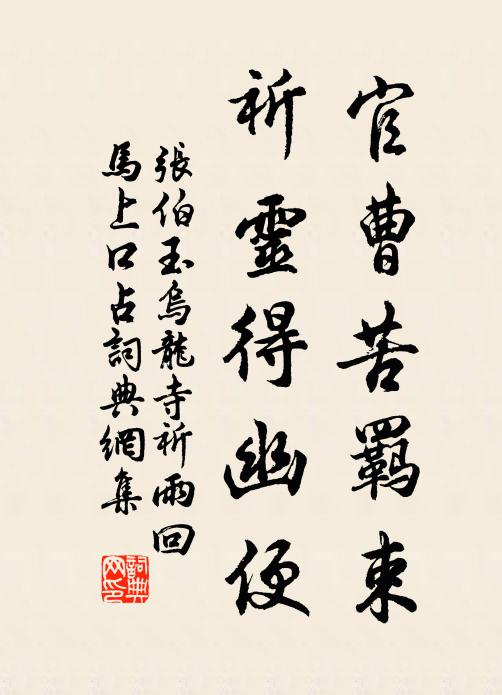 官曹苦羈束
祈靈得幽便
張伯玉烏龍寺祈雨回
馬上口占詞典網集
詞典網印